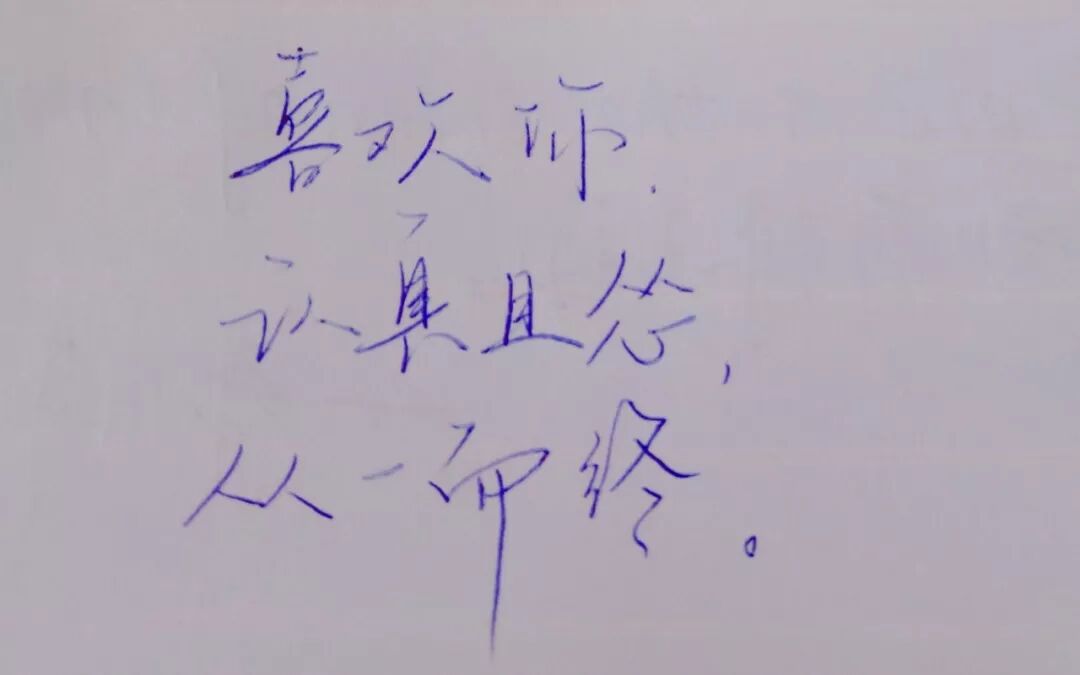 喜欢师,
认真且怂,
从一而终。